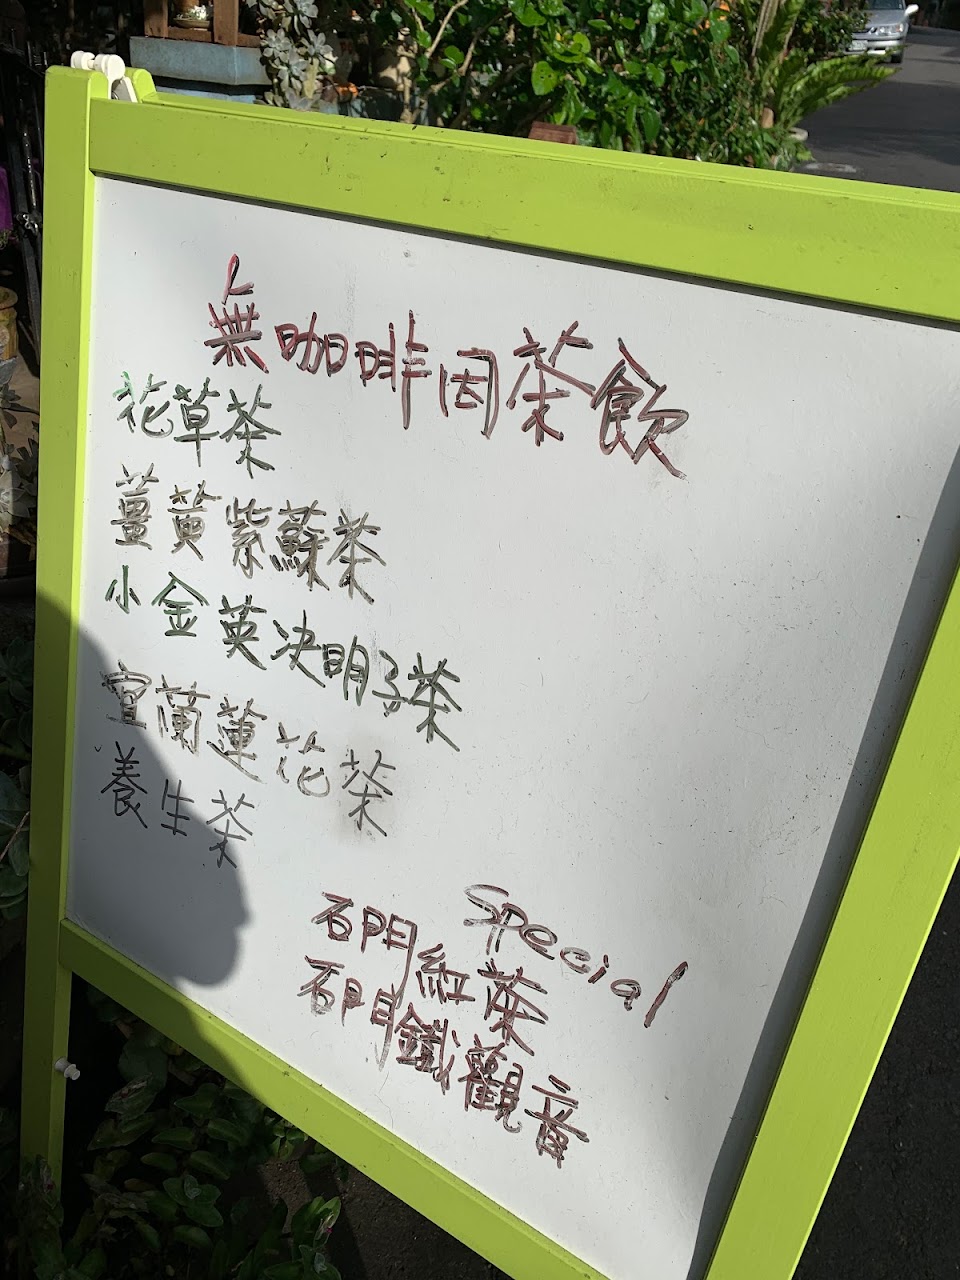 無咖啡因茶飲
花草茶
薑黃紫蘇茶
小金英決明子茶
宜蘭蓮花茶
養生茶
Special
石門紅茶
石門鐵觀音